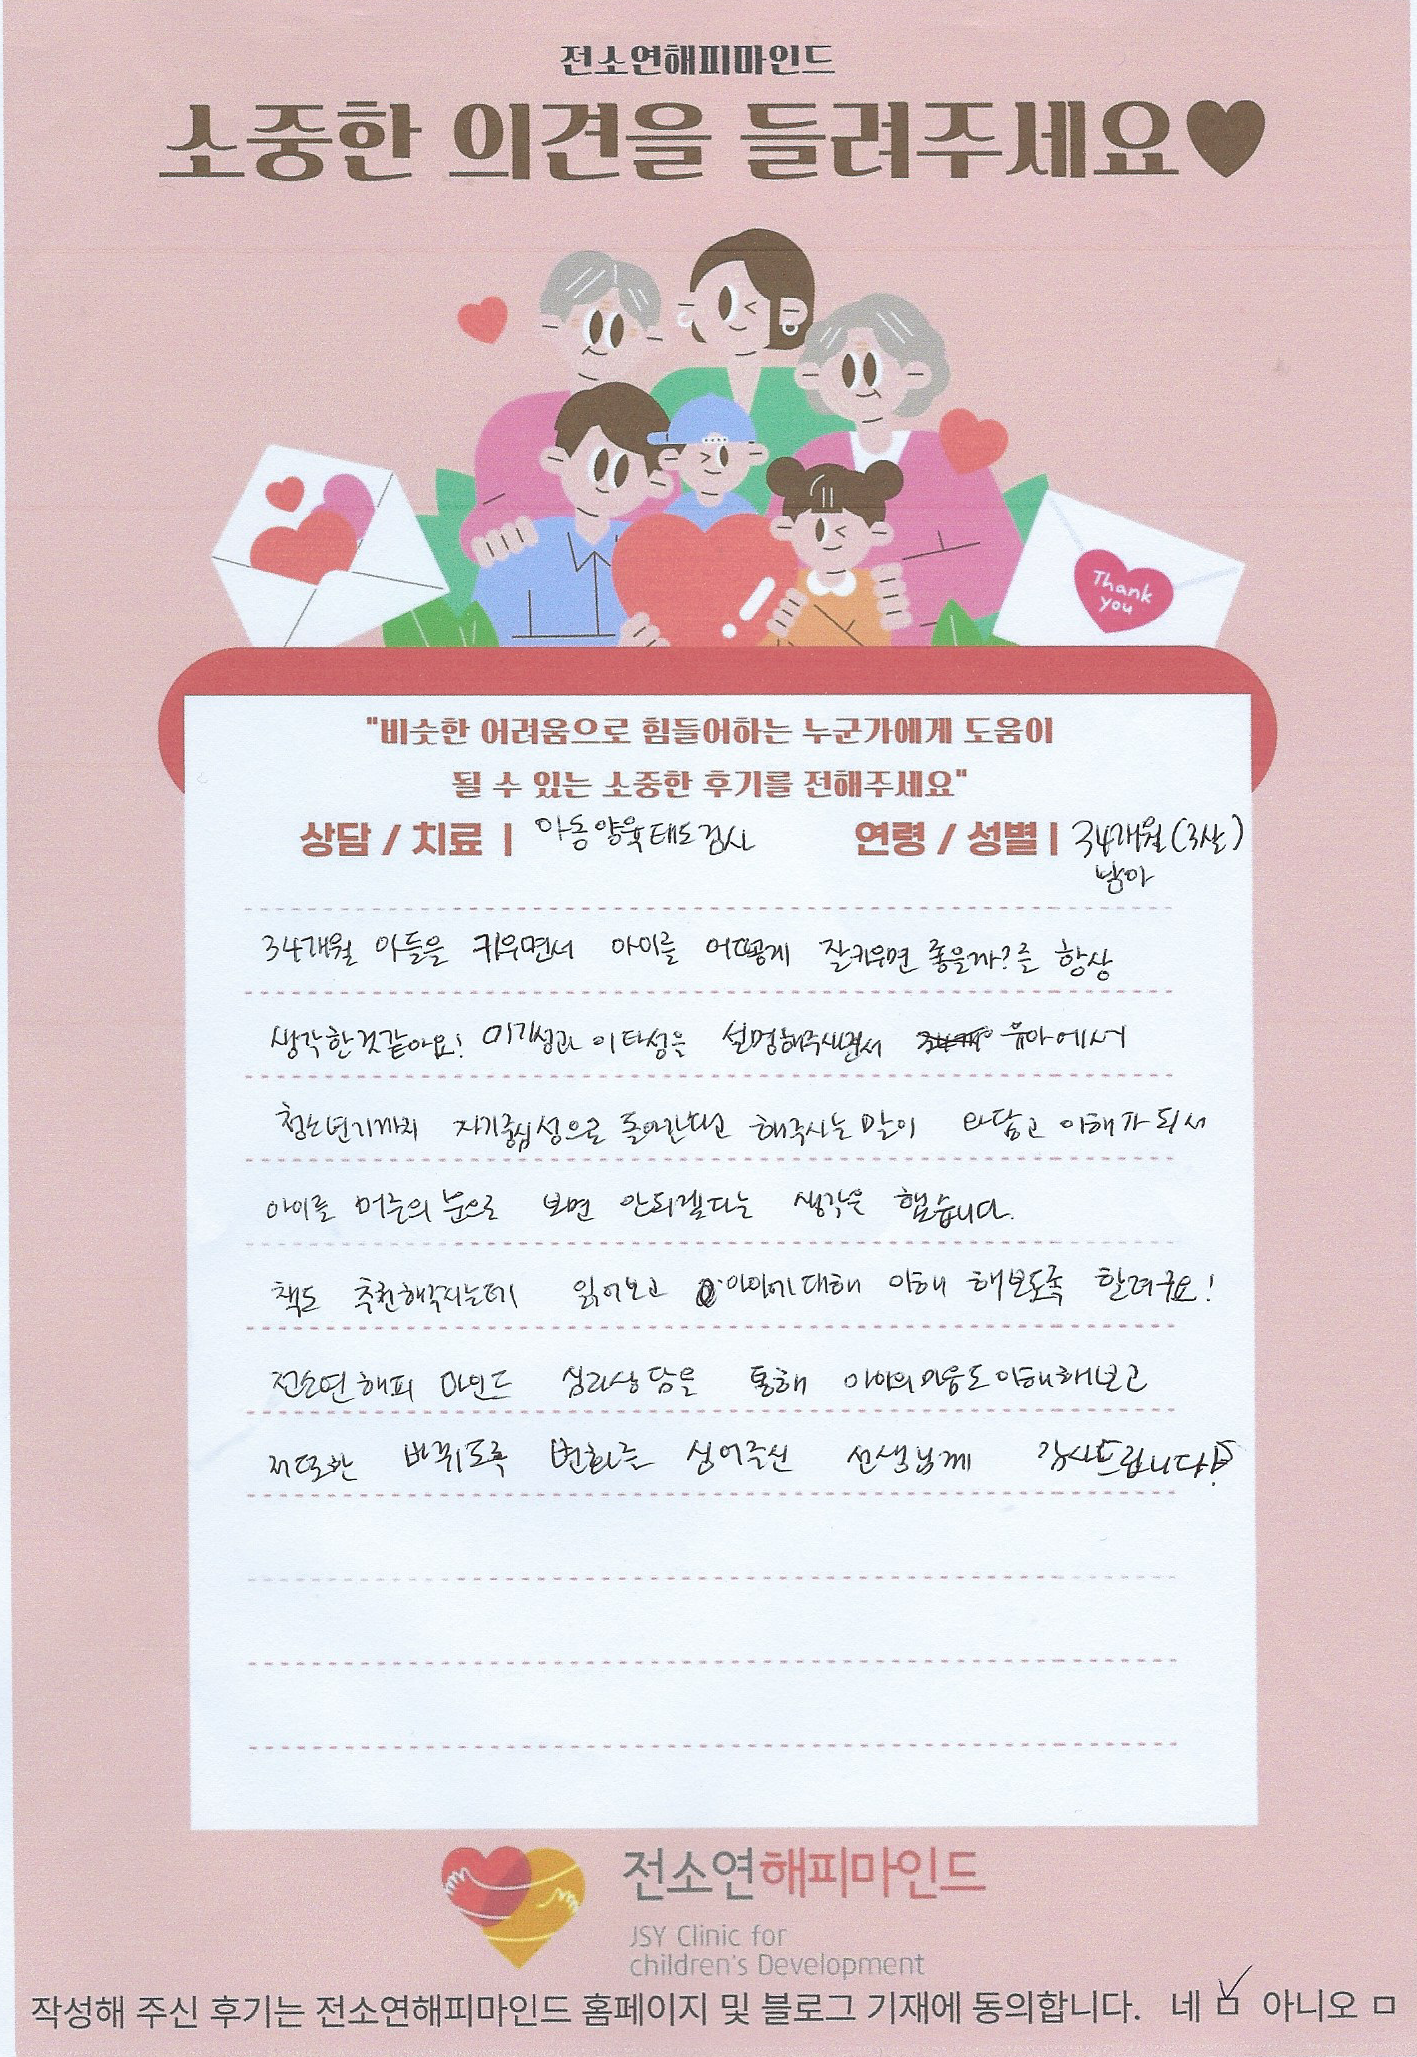 전소연해피마인드
소중한 의견을 들려주세요♥
Thank
you
"비슷한 어려움으로 힘들어하는 누군가에게 도움이
될 수 있는 소중한 후기를 전해주세요"
상담 / 치료 | 아동양육태도검사 연령 / 성별 | 34개월(3살)
남아
34개월 아들을 키우면서 아이를 어떻게 잘키우면 좋을까?를 항상
생각한것같아요! 이기성과 이타성을 설명해주시면서 유아에서
청소년기까지 자기중심성으로 돌아간다고 해주시는 말이 와닿고 이해가 되서
아이를 어른의 눈으로 보면 안되겠다는 생각을 했습니다.
책도 추천해주셨는데 읽어보고 아이에대해 이해 해보도록 할려구요!
전소연해피 마인드 심리상담을 통해 아이의 마음도 이해해보고
저또한 바뀌도록 변화를 심어주신 선생님께 감사드립니다!
전소연해피마인드
JSY Clinic for
children's Development
작성해 주신 후기는 전소연해피마인드 홈페이지 및 블로그 기재에 동의합니다. 네 ☑ 아니오 □